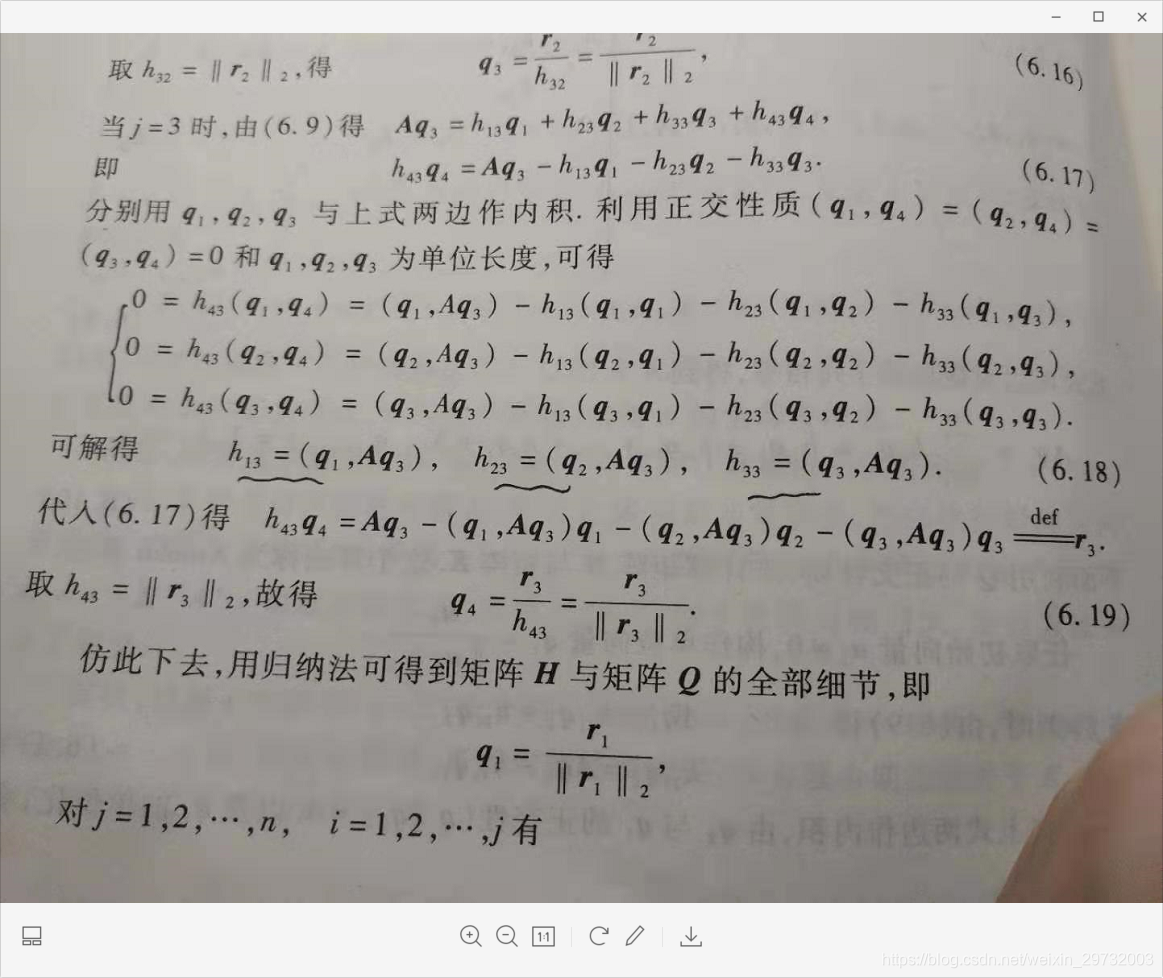 取 h₃₂ = ‖ r₂ ‖ ₂,得 q₃ = r₂/h₃₂ = r₂/‖ r₂ ‖ ₂, (6.16)
当 j=3 时,由(6.9)得 Aq₃ = h₁₃q₁ + h₂₃q₂ + h₃₃q₃ + h₄₃q₄,
即 h₄₃q₄ = Aq₃ - h₁₃q₁ - h₂₃q₂ - h₃₃q₃. (6.17)
分别用 q₁,q₂,q₃ 与上式两边作内积. 利用正交性质(q₁,q₄) = (q₂,q₄) =
(q₃,q₄) =0 和 q₁,q₂,q₃ 为单位长度,可得
0 = h₄₃(q₁,q₄) = (q₁,Aq₃) - h₁₃(q₁,q₁) - h₂₃(q₁,q₂) - h₃₃(q₁,q₃),
0 = h₄₃(q₂,q₄) = (q₂,Aq₃) - h₁₃(q₂,q₁) - h₂₃(q₂,q₂) - h₃₃(q₂,q₃),
0 = h₄₃(q₃,q₄) = (q₃,Aq₃) - h₁₃(q₃,q₁) - h₂₃(q₃,q₂) - h₃₃(q₃,q₃).
可解得 h₁₃ = (q₁,Aq₃), h₂₃ = (q₂,Aq₃), h₃₃ = (q₃,Aq₃). (6.18)
代入(6.17)得 h₄₃q₄ = Aq₃ - (q₁,Aq₃)q₁ - (q₂,Aq₃)q₂ - (q₃,Aq₃)q₃ def== r₃.
取 h₄₃ = ‖ r₃ ‖ ₂,故得 q₄ = r₃/h₄₃ = r₃/‖ r₃ ‖ ₂. (6.19)
仿此下去,用归纳法可得到矩阵 H 与矩阵 Q 的全部细节,即
q₁ = r₁/‖ r₁ ‖ ₂,
对 j=1,2,…,n, i=1,2,…,j 有
1:1
https://blog.csdn.net/weixin_29732003